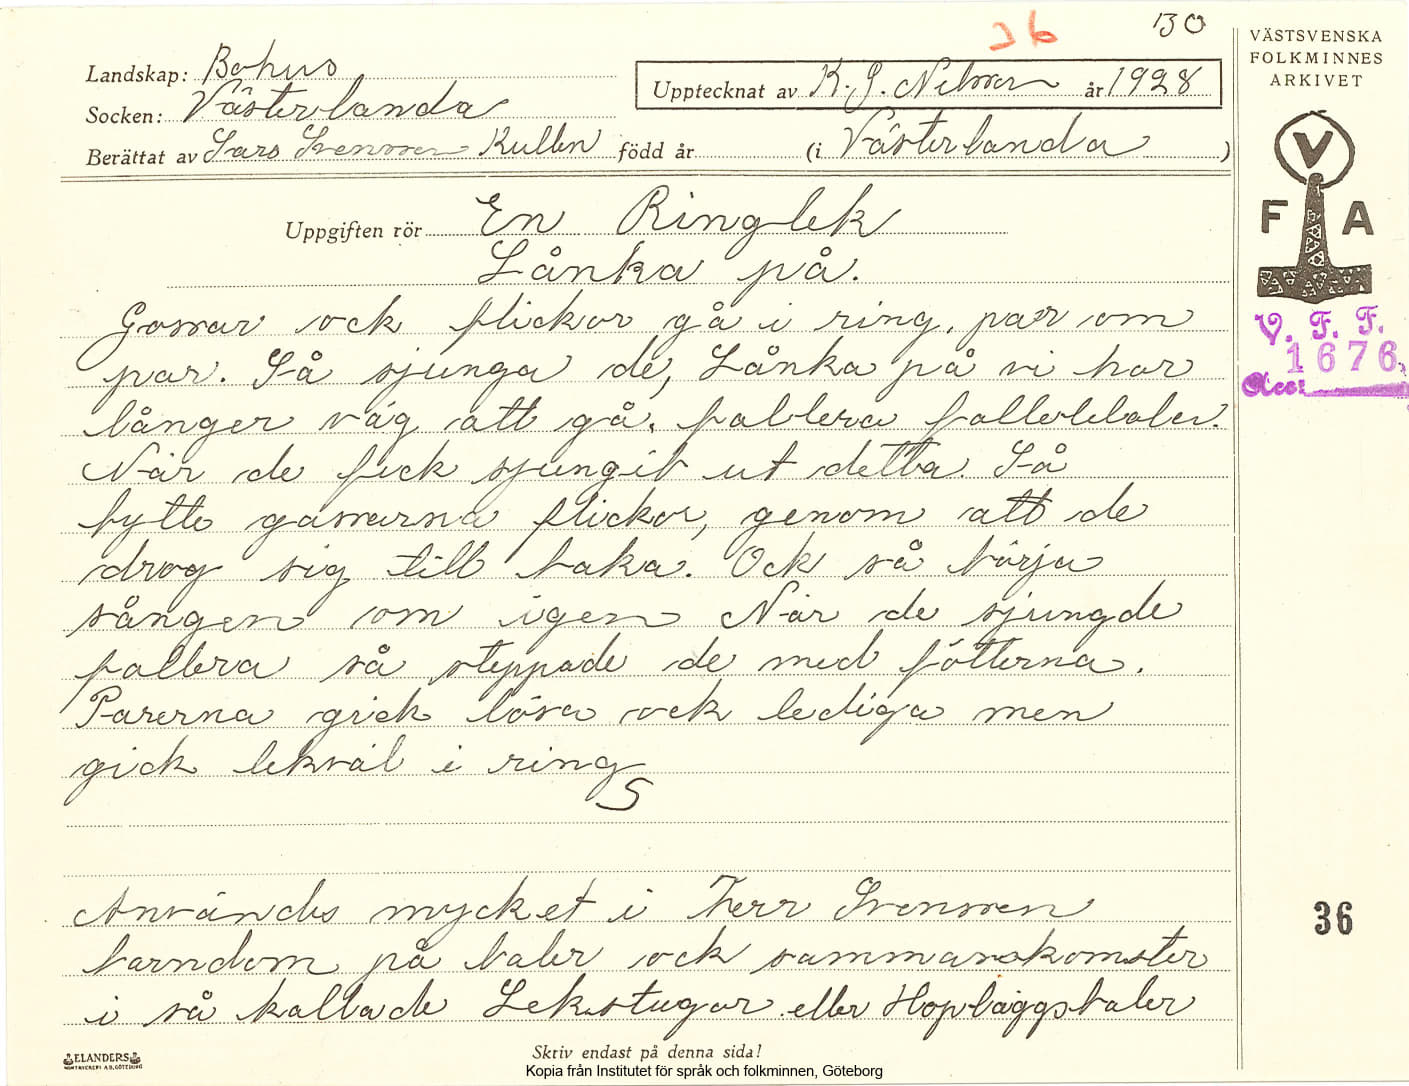 26
130
Landskap: Bohus
Socken: Västerlanda
Berättat av Lars Svensson Kullen född år (i Västerlanda)
Upptecknat av K. G. Nilsson år 1928
Uppgiften rör En Ringlek
Lånka på.
Gossar ock flickor gå i ring, par om
par. Så sjunga de, Lånka på vi har
långer väg att gå, fallera
När de fick sjungit ut detta. Så
bytte gossarna flickor, genom att de
drog sig till baka. Ock så börja
sången om igen När de sjungde
fallera så steppade de med fötterna.
Parerna gick lösa ock lediga men
gick lekväl i ring
S
Användes mycket i Herr Svensson
barndom på baler ock sammanskomster
i så kallade Lekstugor eller Hopläggsbaler
Skriv endast på denna sida!
ELANDERS
Kopia från Institutet för språk och folkminnen, Göteborg
VÄSTSVENSKA
FOLKMINNES
ARKIVET
V
F A
V. F. F.
1676.
Acc:
36